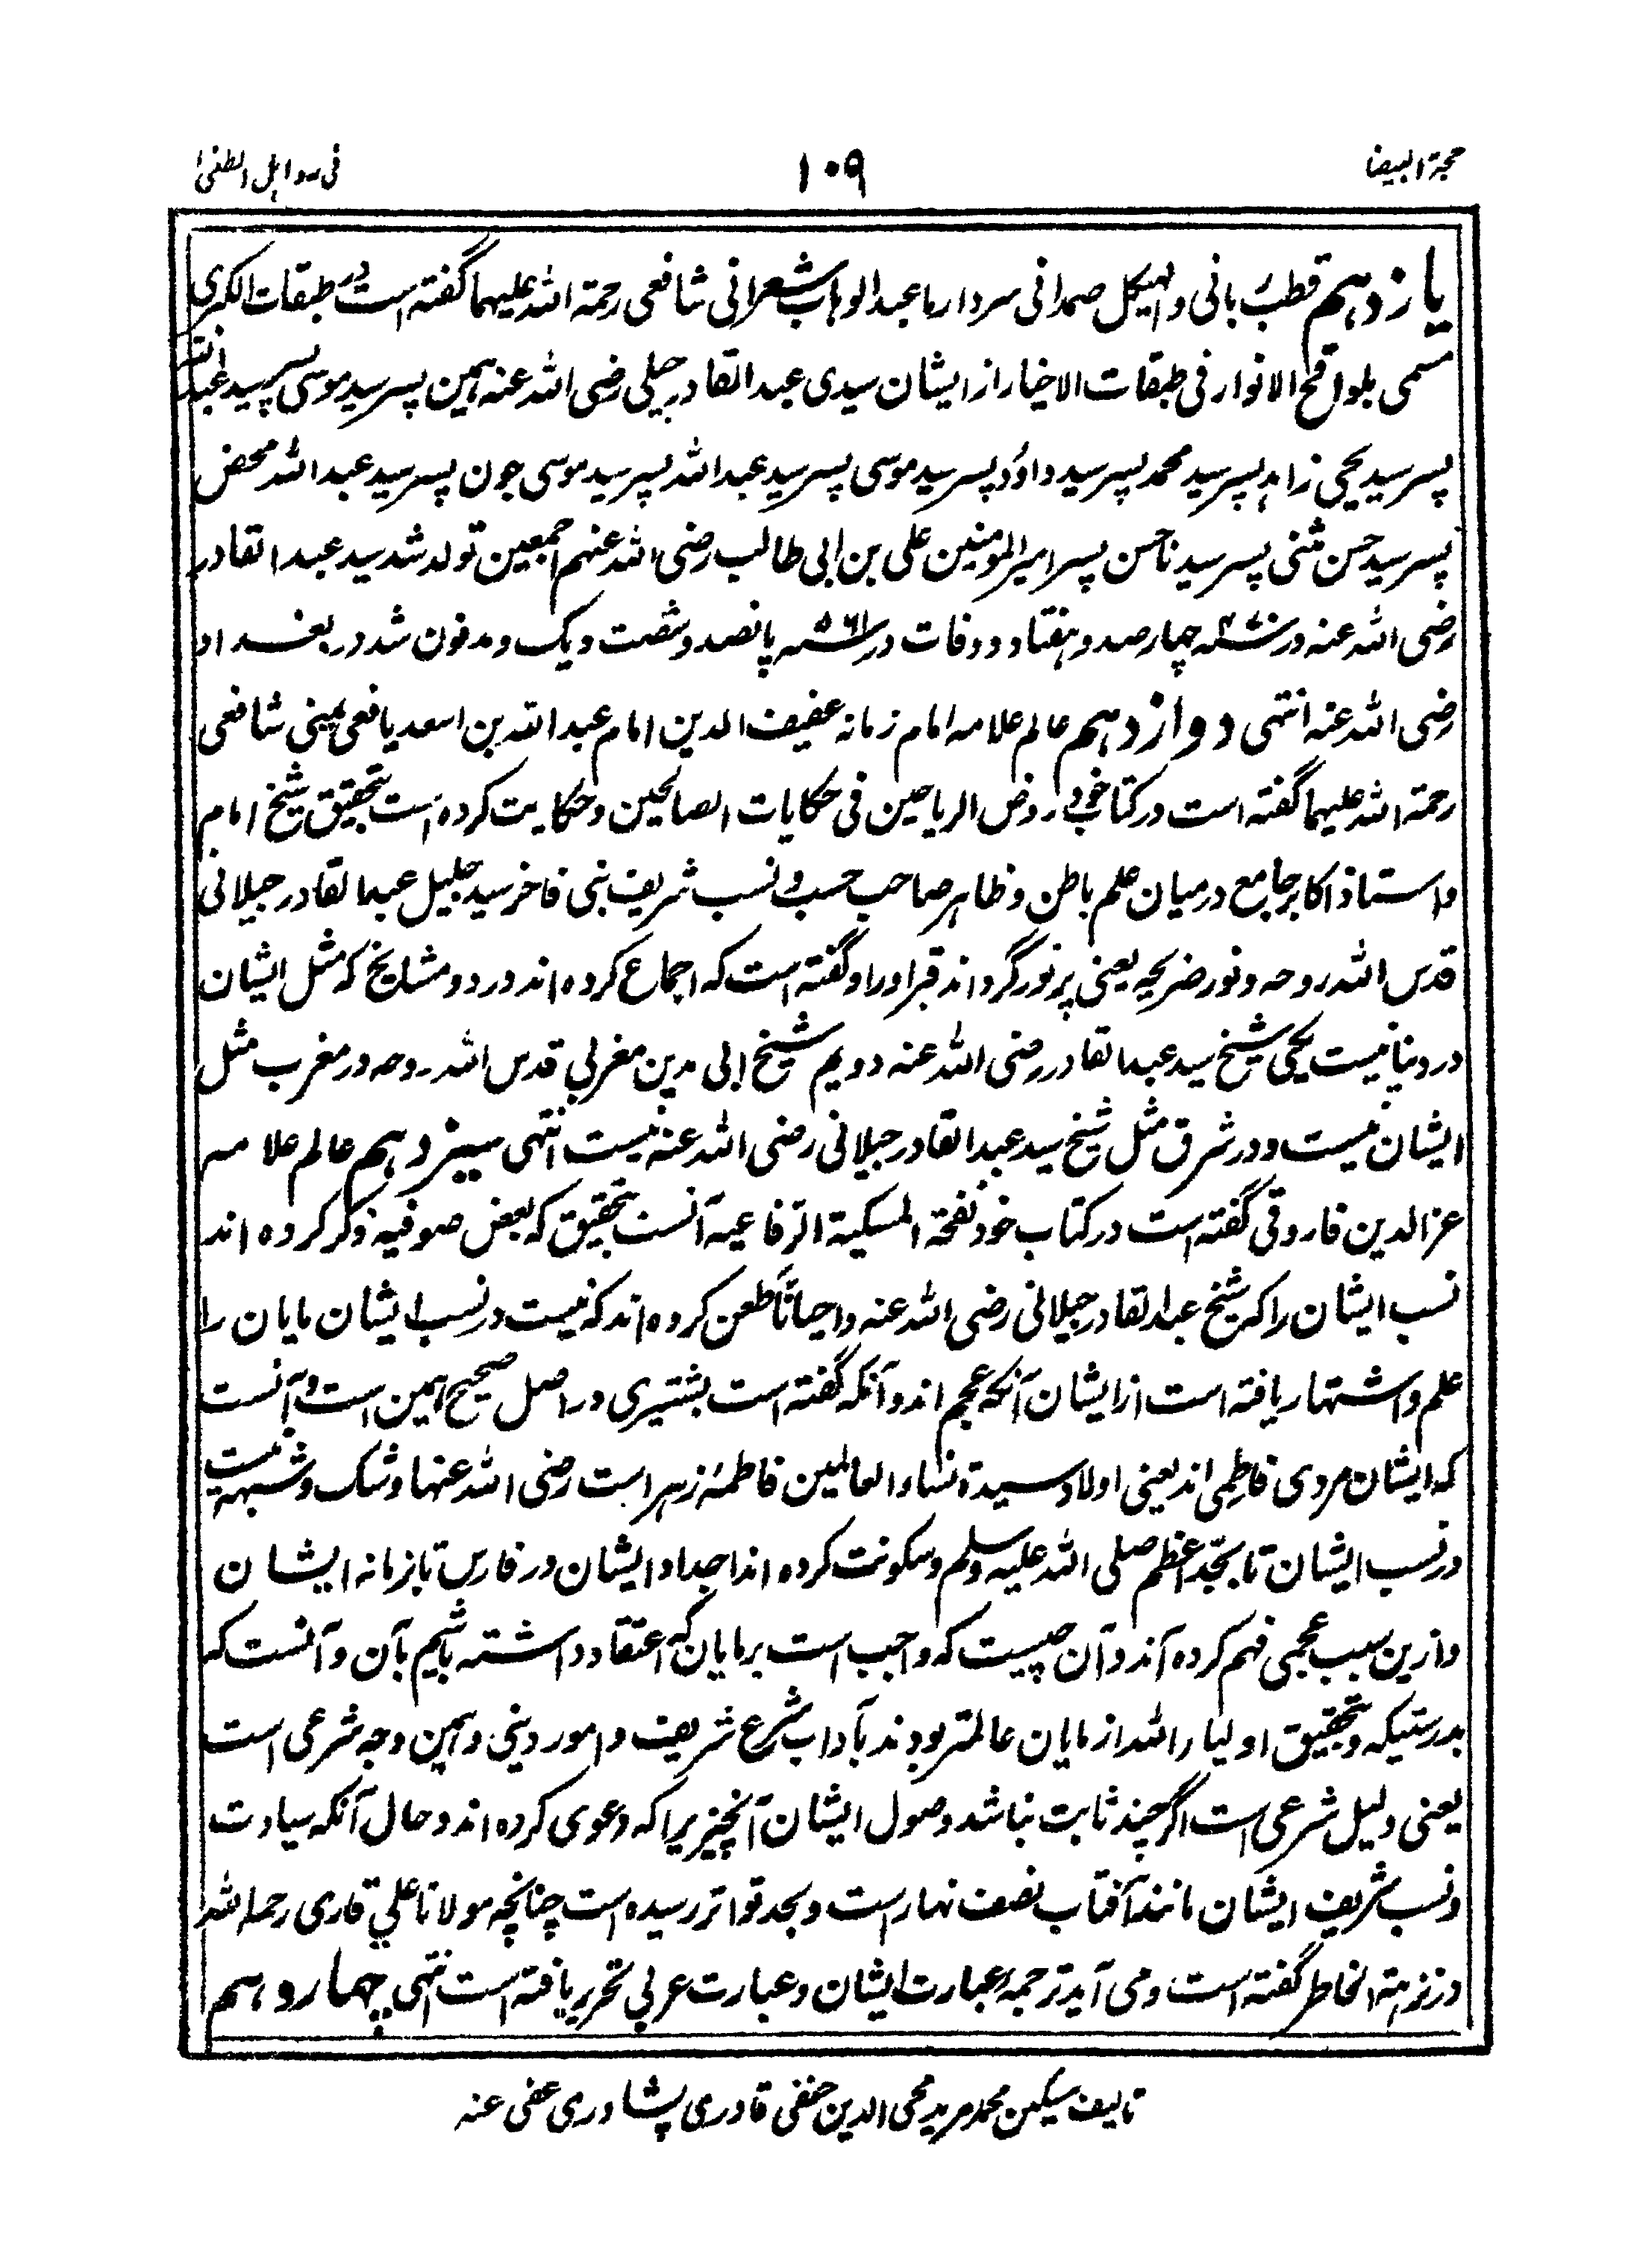 حجة البیضا
۱۰۹
فی رد اہل الطغیٰ
یازدہم قطب ربانی والہیکل صمدانی سردار ما عبدالوہاب شعرانی شافعی رحمة اللہ علیہما گفتہ است در طبقات الکبری
مسمی بلواقح الانوار فی طبقات الاخیار از ایشان سیدی عبد القادر جیلی رضی اللہ عنہ ہمین پسر سید موسی پسر سید عبد اللہ
پسر سید یحیی زاہد پسر سید محمد پسر سید داؤد پسر سید موسی پسر سید عبد اللہ پسر سید موسی جون پسر سید عبد اللہ محض
پسر سید حسن مثنی پسر سیدنا حسن پسر امیر المومنین علی بن ابی طالب رضی اللہ عنہم اجمعین تولد شد سید عبد القادر
رضی اللہ عنہ در ۴۷۰؁ چہار صد و ہفتاد و وفات در ۵۶۱؁ پانصد و شصت و یک و مدفون شد در بغداد
رضی اللہ عنہ انتہی دوازدہم عالم علامہ امام زمانہ عفیف الدین امام عبد اللہ بن اسعد یافعی یمنی شافعی
رحمة اللہ علیہما گفتہ است در کتاب خود روض الریاحین فی حکایات الصالحین و حکایت کردہ است بتحقیق شیخ امام
و استاذ اکابر جامع درمیان علم باطن و ظاہر صاحب حسب و نسب شریف بنی فاخر سید جلیل عبد القادر جیلانی
قدس اللہ روحہ و نور ضریحہ یعنی پر نور گرداند قبر او را و گفتہ است کہ اجماع کردہ اند در دو مشایخ کہ مثل ایشان
در دنیا نیست یکی شیخ سید عبد القادر رضی اللہ عنہ دویم شیخ ابی مدین مغربی قدس اللہ روحہ در مغرب مثل
ایشان نیست و در شرق مثل شیخ سید عبد القادر جیلانی رضی اللہ عنہ نیست انتہی سیزدہم عالم علامہ
عز الدین فاروقی گفتہ است در کتاب خود نفحة المسکیة الرفاعیہ آنست بتحقیق کہ بعض صوفیہ ذکر کردہ اند
نسب ایشان را کہ شیخ عبد القادر جیلانی رضی اللہ عنہ و احیاناً طعن کردہ اند کہ نیست در نسب ایشان مایان را
علم و اشتہار یافتہ است از ایشان آنکہ عجم اند و آنکہ گفتہ است بشتیری در اصل صحیح ہمین است و آنست
کہ ایشان مردی فاطمی اند یعنی اولاد سیدة نساء العالمین فاطمۂ زہرا است رضی اللہ عنہا و شک و شبہہ نیست
در نسب ایشان تا بجد اعظم صلی اللہ علیہ وسلم و سکونت کردہ اند اجداد ایشان در فارس تا بزمانہ ایشان
و ازین سبب عجمی فہم کردہ اند و آن چیست کہ واجب است بر مایان کہ اعتقاد داشتہ باشیم بآن و آنست کہ
بدرستیکہ و بتحقیق اولیاء اللہ از مایان عالمتر بودند بآداب شرع شریف و امور دینی و ہمین وجہ شرعی است
یعنی دلیل شرعی است اگرچند ثابت نباشد وصول ایشان آنچیزیرا کہ دعوی کردہ اند و حال آنکہ سیادت
و نسب شریف ایشان مانند آفتاب نصف نہار است و بحد تواتر رسیدہ است چنانچہ مولانا علی قاری رحمہ اللہ
در نزہتہ الخاطر گفتہ است و می آید ترجمۂ عبارت ایشان و عبارت عربی تحریر یافتہ است انتہی چہاردہم
تالیف مسکین محمد مرید محی الدین حنفی قادری پشاوری عفی عنہ